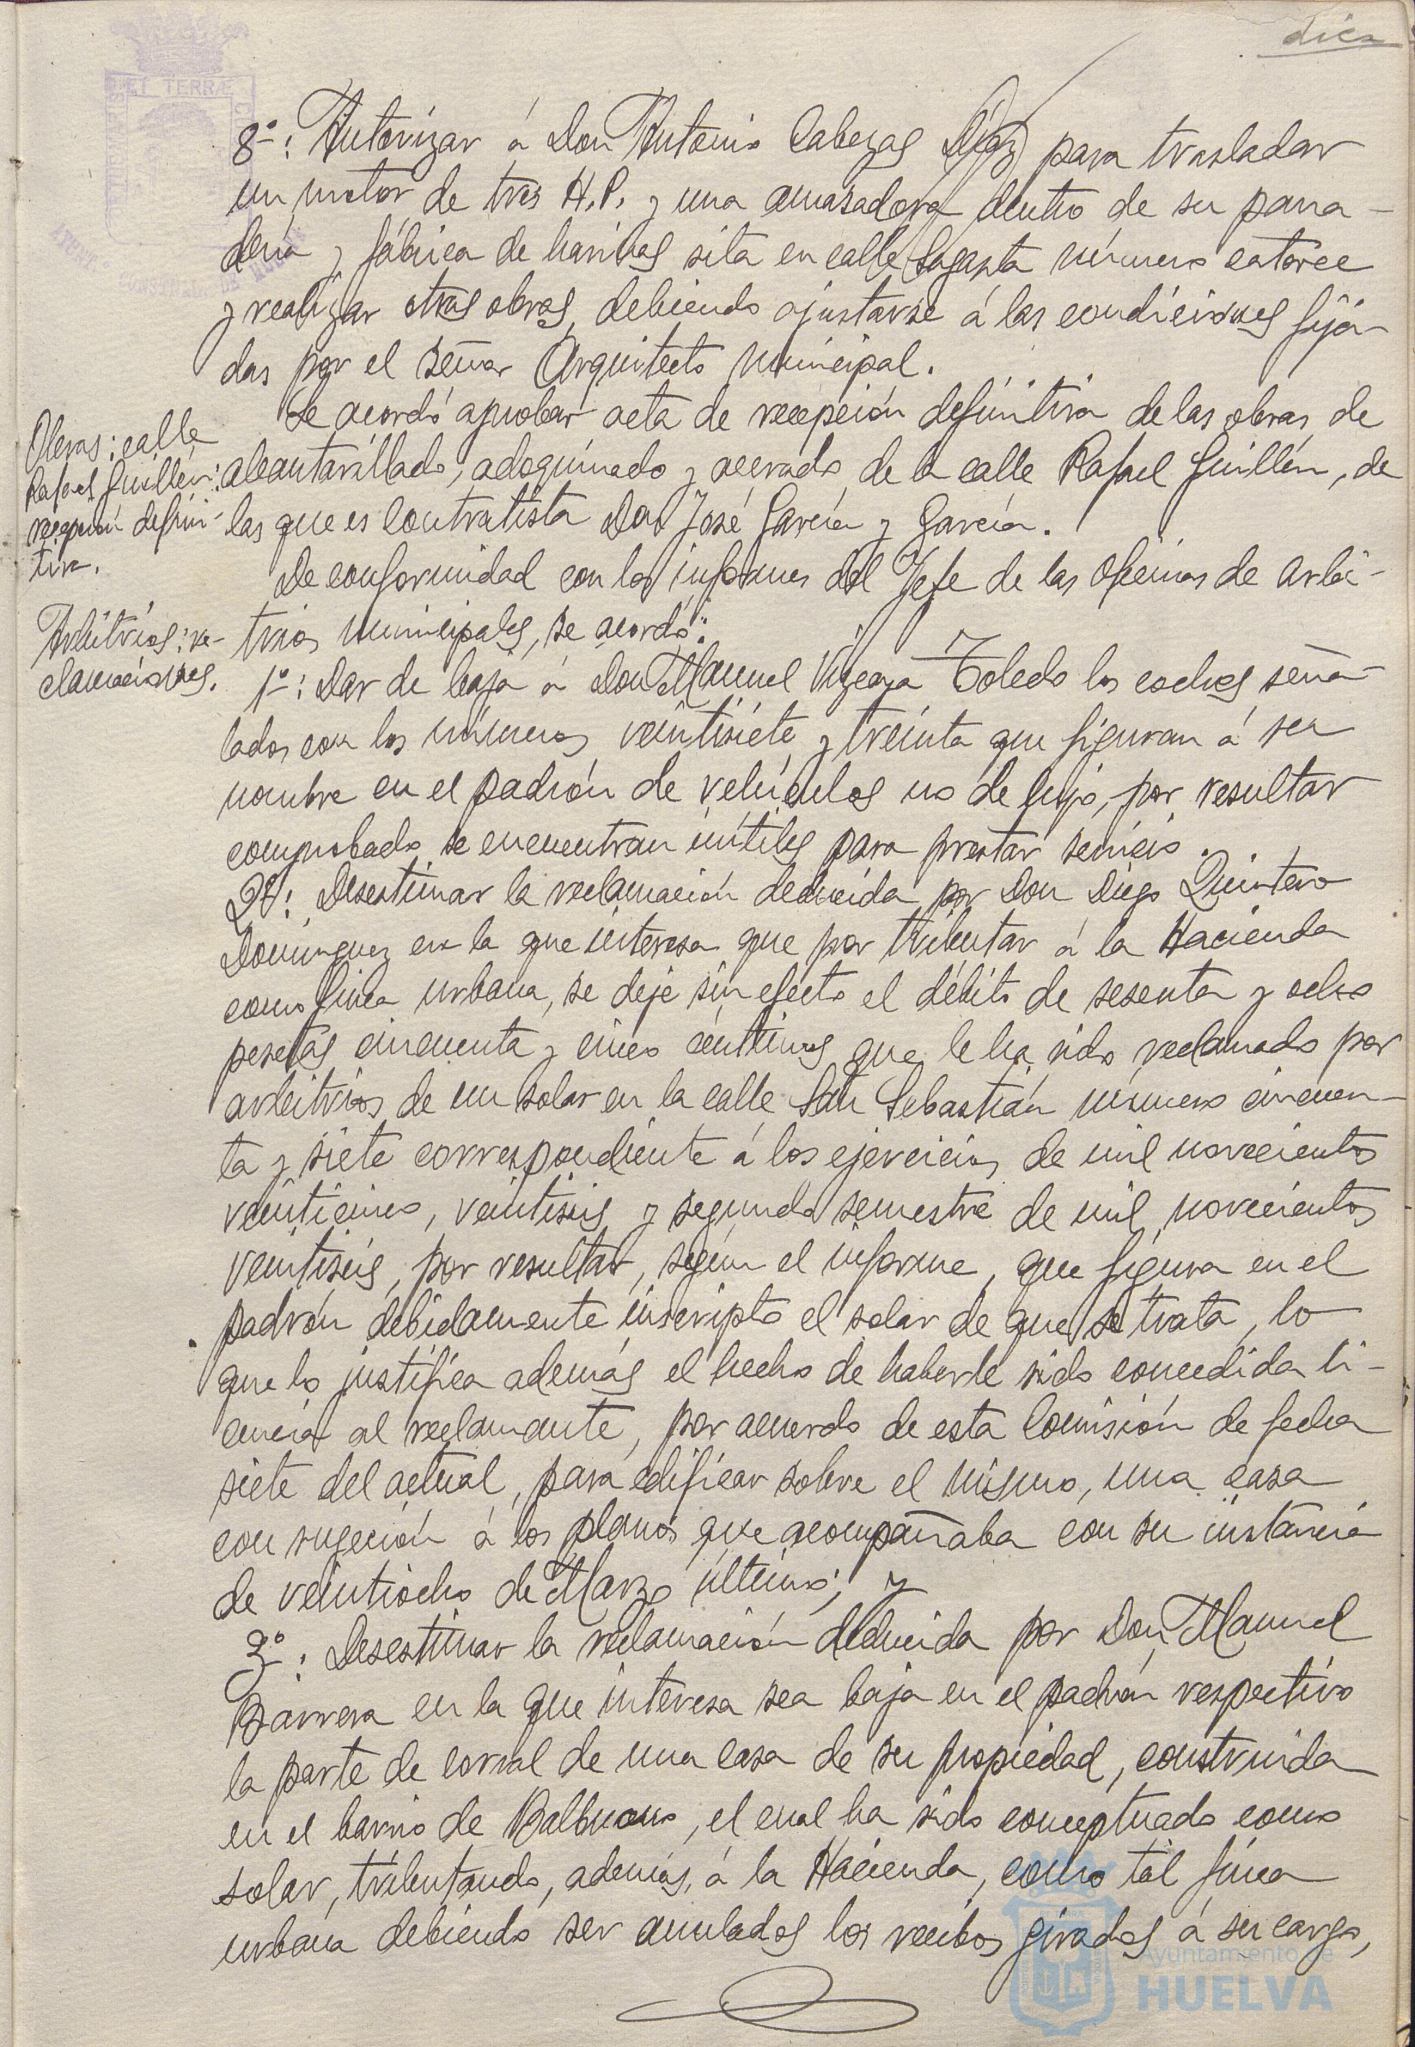 diez
8º: Autorizar á Don Antonio Cabezas Díaz para trasladar
un motor de tres H.P. y una amasadora dentro de su pana-
dería y fábrica de harinas sita en calle Sagasta número catorce
y realizar otras obras, debiendo ajustarse á las condiciones fija-
das por el señor Arquitecto municipal.
Se acordó aprobar acta de recepción definitiva de las obras de
Obras: calle
Rafael Guillén:
recepción defini-
tiva.
alcantarillado, adoquinado y acerado de la calle Rafael Guillén, de
las que es contratista Don José García y García.
De conformidad con los informes del Jefe de las oficinas de arbi-
Arbitrios: re-
clamaciones.
trios municipales, se acordó:
1º: Dar de baja á Don Manuel Vizcaya Toledo los coches seña-
lados con los números veintisiete y treinta que figuran á su
nombre en el padrón de vehículos no de lujo, por resultar
comprobado se encuentran inútiles para prestar servicio.
2º: Desestimar la reclamación deducida por Don Diego Quintero
Domínguez en la que interesa que por tributar á la Hacienda
como finca urbana, se deje sin efecto el débito de sesenta y ocho
pesetas cincuenta y cinco céntimos que le ha sido reclamado por
arbitrios de un solar en la calle San Sebastián número cincuen-
ta y siete correspondiente á los ejercicios de mil novecientos
veinticinco, veintiseis y segundo semestre de mil novecientos
veintiseis, por resultar, según el informe, que figura en el
padrón debidamente inscripto el solar de que se trata, lo
que lo justifica además el hecho de haberle sido concedida li-
cencia al reclamante, por acuerdo de esta Comisión de fecha
siete del actual, para edificar sobre el mismo, una casa
con sugeción á los planos que acompañaba con su instancia
de veintiocho de Marzo último; y
3º: Desestimar la reclamación deducida por Don Manuel
Barrera en la que interesa sea baja en el padrón respectivo
la parte de corral de una casa de su propiedad, construida
en el barrio de Balbueno, el cual ha sido conceptuado como
solar, tributando, además, á la Hacienda, como tal finca
urbana debiendo ser anulados los recibos girados á su cargo,
Ayuntamiento de
HUELVA